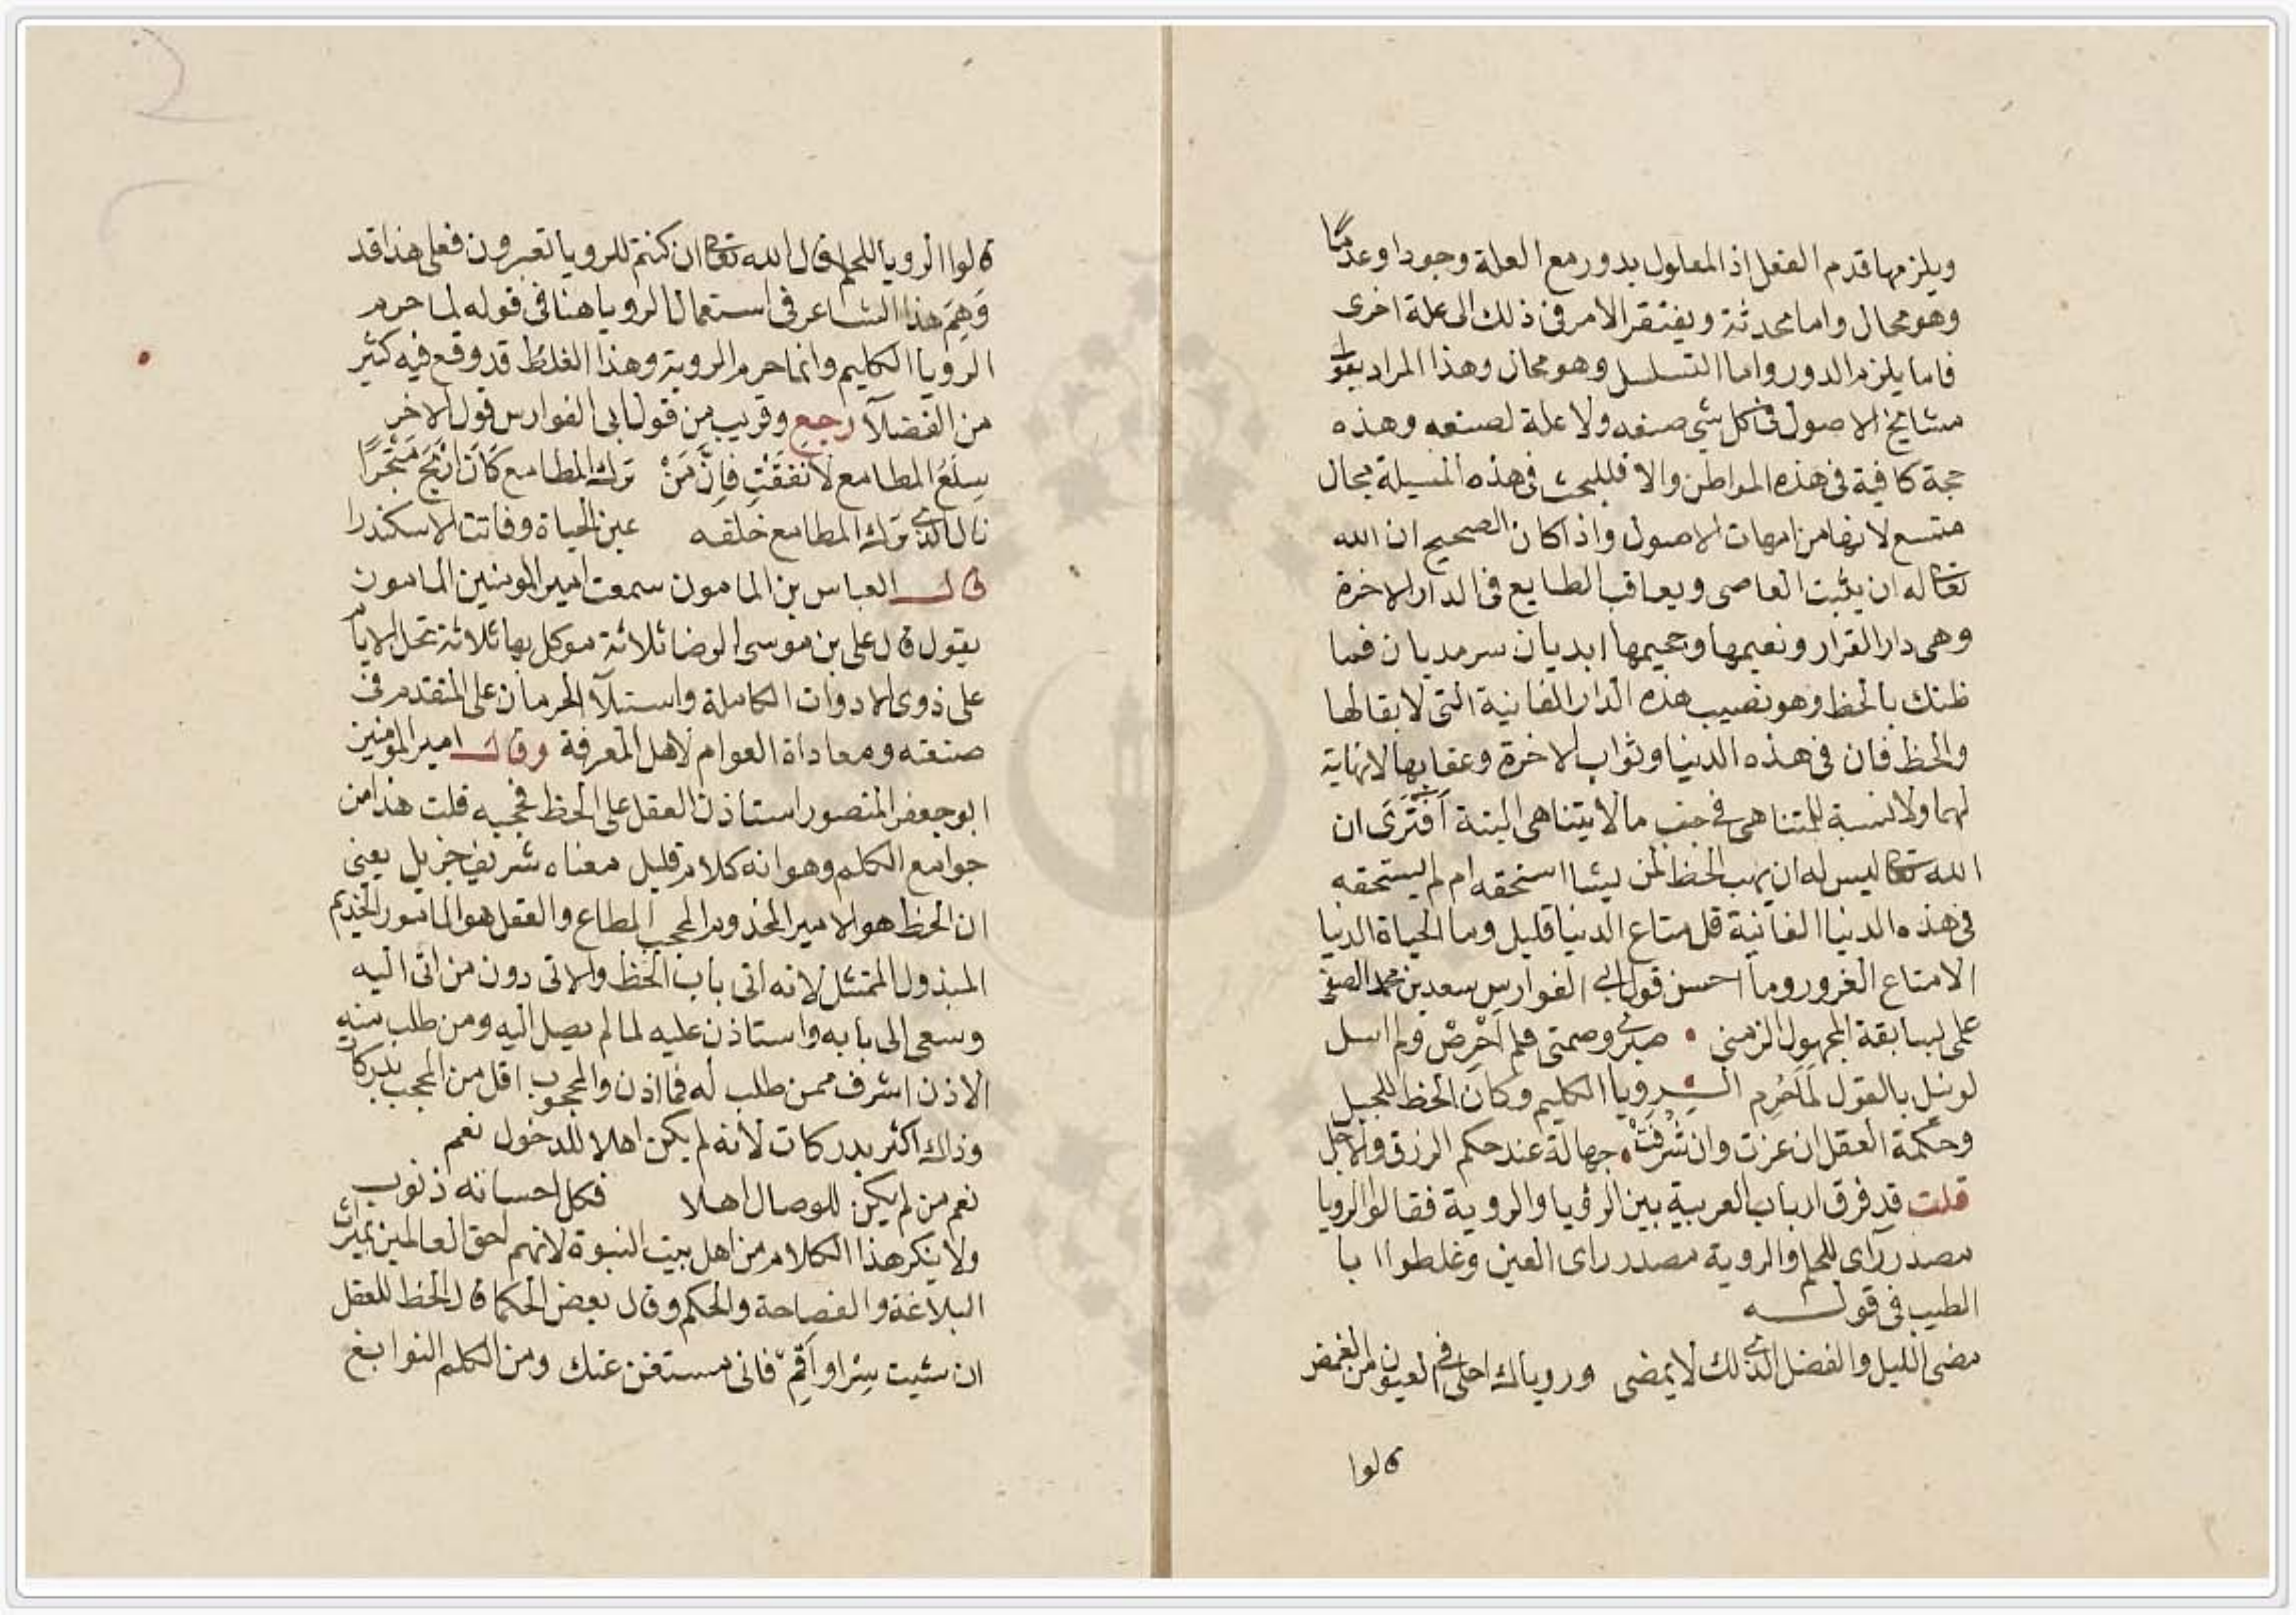 ويلزمها قدم الفعل اذ المعلول يدور مع العلة وجودا وعدمًا
وهو محال واما محدثة ويفتقر الامر فى ذلك الى علة اخرى
فاما يلزم الدور واما التسلسل وهو محال وهذا المراد بقول
مشايخ الاصول فى كل شى صنعه ولا علة لصنعه وهذه
حجة كافية فى هذه المواطن والا فللبحث فى هذه المسيلة مجال
متسع لانها من امهات الاصول واذا كان الصحيح ان الله
تعالى له ان يثبت العاصى ويعاقب الطايع فى الدار الاخرة
وهى دار القرار ونعيمها وجحيمها ابديان سرمديان فما
ظنك بالحظ وهو نصيب هذه الدار الفانية التى لا بقا لها
والحظ فان فى هذه الدنيا وثواب الاخرة وعقابها لا نهاية
لهما ولا نسبة للمتناهى فى جنب ما لا يتناهى البتة أَفَتَرَى ان
الله تعالى ليس له ان يهب الحظ لمن يشا استحقه ام لم يستحقه
فى هذه الدنيا الفانية قل متاع الدنيا قليل وما الحياة الدنيا
الا متاع الغرور وما احسن قول ابى الفوارس سعد بن محمد الصيفى
على لسابقة المجهول الزمنى • صبرى وصمتى فلم احْرِصْ ولم اسل
لو نيل بالقول لما حُرِم الرويا الكليم وكان الحظ للجبل
وحكمة العقل ان عزت وان شَرُفَتْ • جهالة عند حكم الرزق والاجل
قلت قد فرق ارباب العربية بين الرؤيا والروية فقالوا الرويا
مصدر رآى للحلم والروية مصدر راى العين وغلطوا ابا
الطيب فى قوله
مضى الليل والفضل الذى لك لا يمضى وروياك احلى فى العيون من الغمض
قالوا
قالوا الرويا للحلم قال الله تعالى ان كنتم للرويا تعبرون فعلى هذا قد
وَهِمَ هذا الشاعر فى استعمال الرويا هنا فى قوله لما حرم
الرويا الكليم وانما حرم الروية وهذا الغلط قد وقع فيه كثير
من الفضلآ رجع وقريب من قول ابى الفوارس قول الاخر
سِلَعُ المطامع لا نَفَقَتْ فاِنَّ مَنْ ترك المطامع كَانَ انْجَحَ مَتْجَرًا
نال الذى ترك المطامع خلقه عين الحياة وفاتت الاسكندرا
قال العباس بن المامون سمعت امير المومنين المامون
يقول قال على بن موسى الرضا ثلاثة موكل بها ثلاثة تحمل الايام
على ذوى الادوات الكاملة واستيلآ الحرمان على المتقدم فى
صنعته ومعاداة العوام لاهل المعرفة وقال امير المؤمنين
ابو جعفر المنصور استاذن العقل على الحظ فحجبه قلت هذا من
جوامع الكلم وهو انه كلام قليل معناه شريف جزيل يعنى
ان الحظ هو الامير المخدوم المحجب المطاع والعقل هو المامور الخديم
المبذول الممتثل لانه اتى باب الحظ والاتى دون من اتى اليه
وسعى الى بابه واستاذن عليه لما لم يصل اليه ومن طلب منه
الاذن اشرف ممن طلب له فما اذن والمحجوب اقل من المحجب بدركات
وذاك اكثر بدركات لانه لم يكن اهلا للدخول نعم
نعم من لم يكن للوصال اهلا فكل احسانه ذنوب
ولا ينكر هذا الكلام من اهل بيت النبوة لانهم احق العالمين بميراث
البلاغة والفصاحة والحكم وقال بعض الحكما قال الحظ للعقل
ان شيت سِرْ او اَقِمْ فانى مستغن عنك ومن الكلم النوابغ